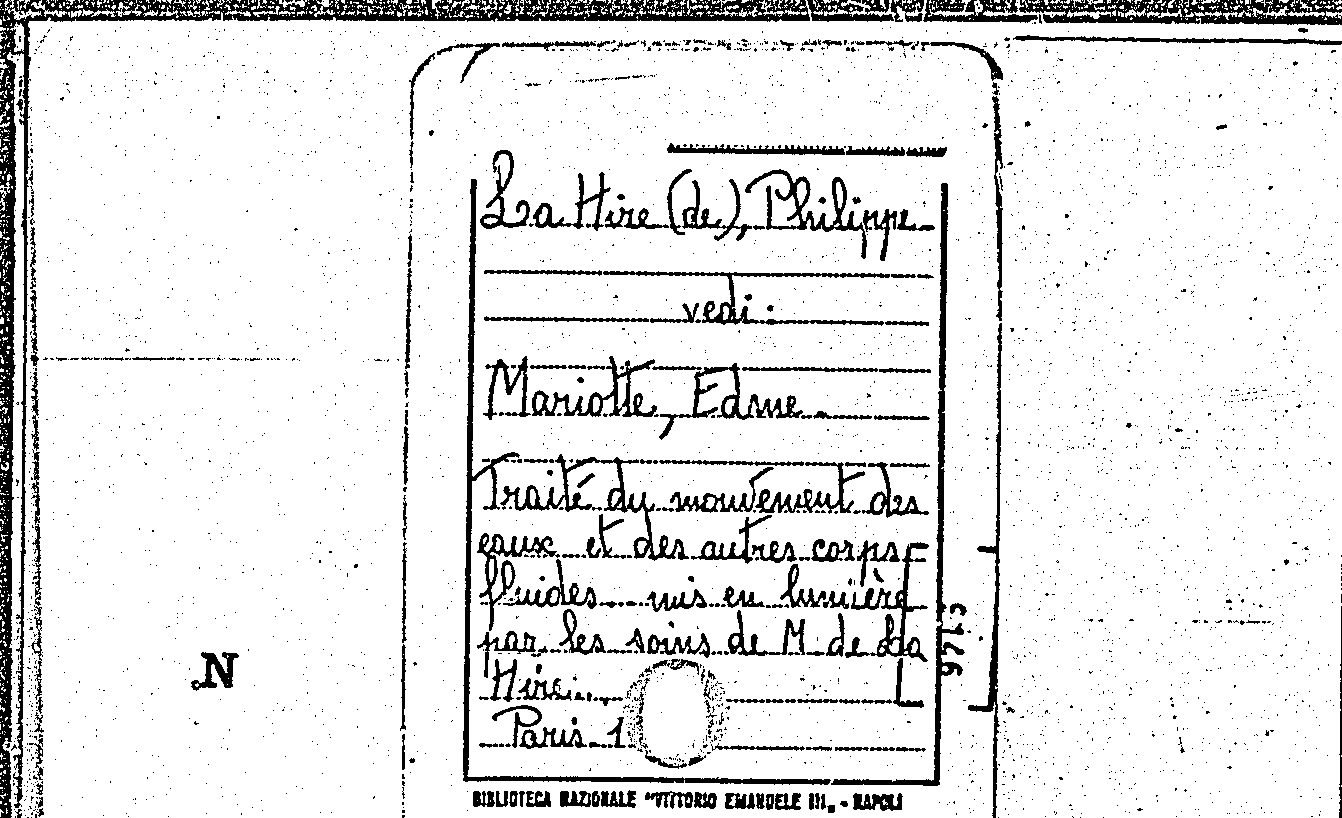 La Hire (de), Philippe
vedi:
Mariotte, Edme.
Traité du mouvement des
eaux et des autres corps
fluides... mis en lumière
par les soins de M. de La
Hire...
Paris 1
BIBLIOTECA NAZIONALE "VITTORIO EMANUELE III„ - NAPOLI
N.